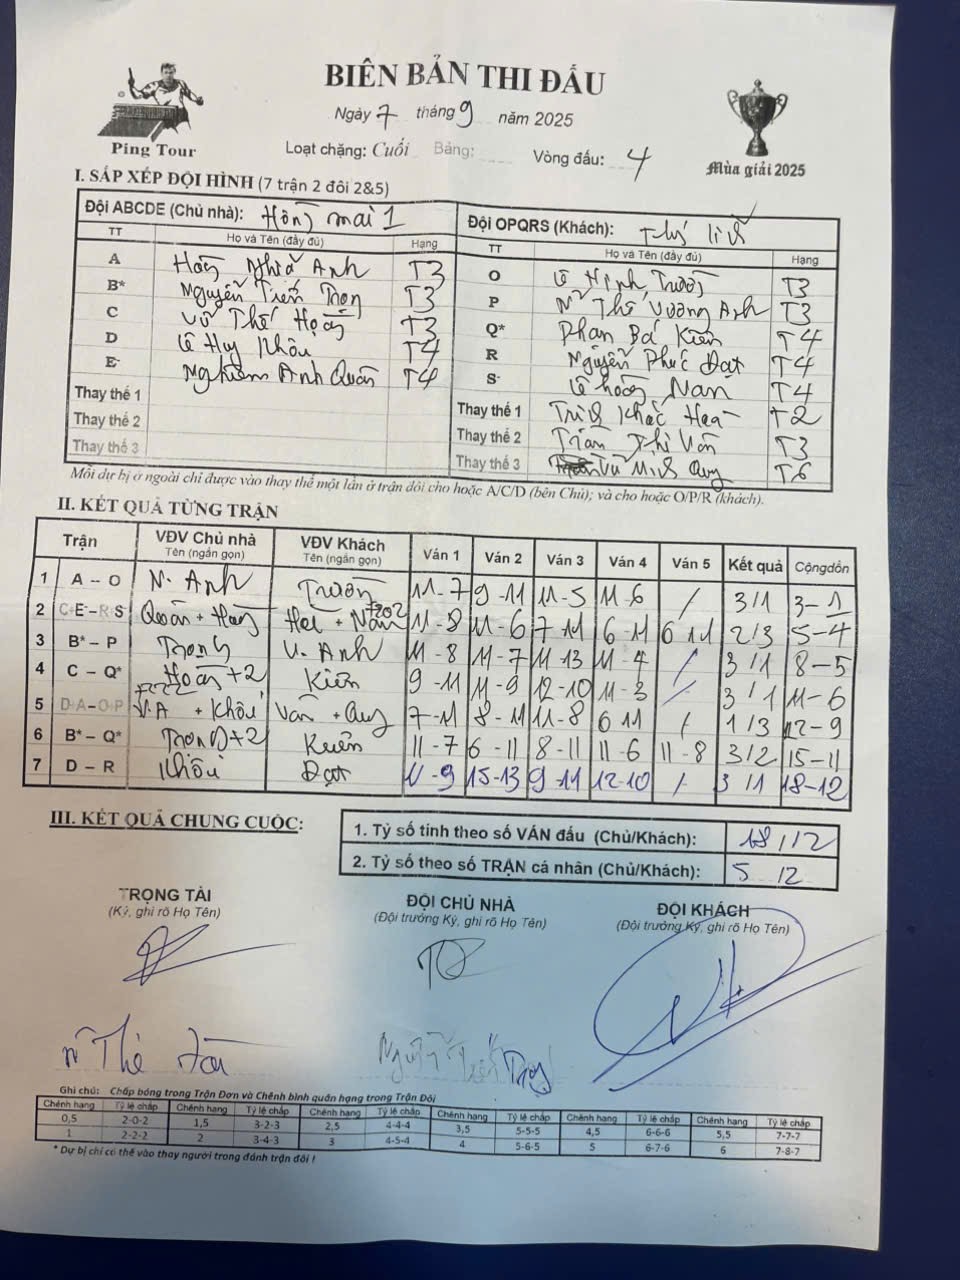 BIÊN BẢN THI ĐẤU
Ngày 7 tháng 9 năm 2025
Ping Tour
Loạt chặng: Cuối Bảng: Vòng đấu: 4
Mùa giải 2025
I. SẮP XẾP ĐỘI HÌNH (7 trận 2 đôi 2&5)
Đội ABCDE (Chủ nhà): Hồng mai 1
Đội OPQRS (Khách):
TT Họ và Tên (đầy đủ) Hạng
TT Họ và Tên (đầy đủ) Hạng
A Hoàng Nghĩa Anh T3
B* Nguyễn Tiến Trọng T3
C Vũ Thế Hoàng T3
D Lê Huy Khôi T4
E- Nghiêm Anh Quân T4
Thay thế 1
Thay thế 2
Thay thế 3
O Lê Minh Trường T3
P N Thế Vương Anh T3
Q* Phan Bá Kiên T4
R Nguyễn Phúc Đạt T4
S- Lê Hoàng Nam T4
Thay thế 1 Trịnh Khắc T2
Thay thế 2 Trần Thị Vân T3
Thay thế 3 Vũ Minh Quy T6
Mỗi dự bị ở ngoài chỉ được vào thay thế một lần ở trận đôi cho hoặc A/C/D (bên Chủ); và cho hoặc O/P/R (khách).
II. KẾT QUẢ TỪNG TRẬN
Trận VĐV Chủ nhà Tên (ngắn gọn) VĐV Khách Tên (ngắn gọn) Ván 1 Ván 2 Ván 3 Ván 4 Ván 5 Kết quả Cộngdồn
1 A – O N. Anh Trường 11-7 9-11 11-5 11-6 / 3/1 3-1
2 C-E – R-S Quân + Hoàng + Nam 11-8 11-6 7-11 6-11 6 11 2/3 5-4
3 B* – P Trọng V. Anh 11-8 11-7 11-13 11-4 / 3/1 8-5
4 C – Q* Hoàng +2 Kiên 9-11 11-9 12-10 11-3 / 3/1 11-6
5 D-A – O-P + Khôi Vân + Quy 7-11 8-11 11-8 6 11 / 1/3 12-9
6 B* – Q* Trọng +2 Kiên 11-7 6-11 8-11 11-6 11-8 3/2 15-11
7 D – R Khôi Đạt 11-9 15-13 9-11 12-10 / 3/1 18-12
III. KẾT QUẢ CHUNG CUỘC:
1. Tỷ số tính theo số VÁN đấu (Chủ/Khách): 18/12
2. Tỷ số theo số TRẬN cá nhân (Chủ/Khách): 5 /2
TRỌNG TÀI
(Ký, ghi rõ Họ Tên)
ĐỘI CHỦ NHÀ
(Đội trưởng Ký, ghi rõ Họ Tên)
ĐỘI KHÁCH
(Đội trưởng Ký, ghi rõ Họ Tên)
Nguyễn Tiến Trọng
Ghi chú: Chấp bóng trong Trận Đơn và Chênh bình quân hạng trong Trận Đôi
Chênh hạng Tỷ lệ chấp Chênh hạng Tỷ lệ chấp Chênh hạng Tỷ lệ chấp Chênh hạng Tỷ lệ chấp Chênh hạng Tỷ lệ chấp Chênh hạng Tỷ lệ chấp
0,5 2-0-2 1,5 3-2-3 2,5 4-4-4 3,5 5-5-5 4,5 6-6-6 5,5 7-7-7
1 2-2-2 2 3-4-3 3 4-5-4 4 5-6-5 5 6-7-6 6 7-8-7
* Dự bị chỉ có thể vào thay người trong đánh trận đôi !